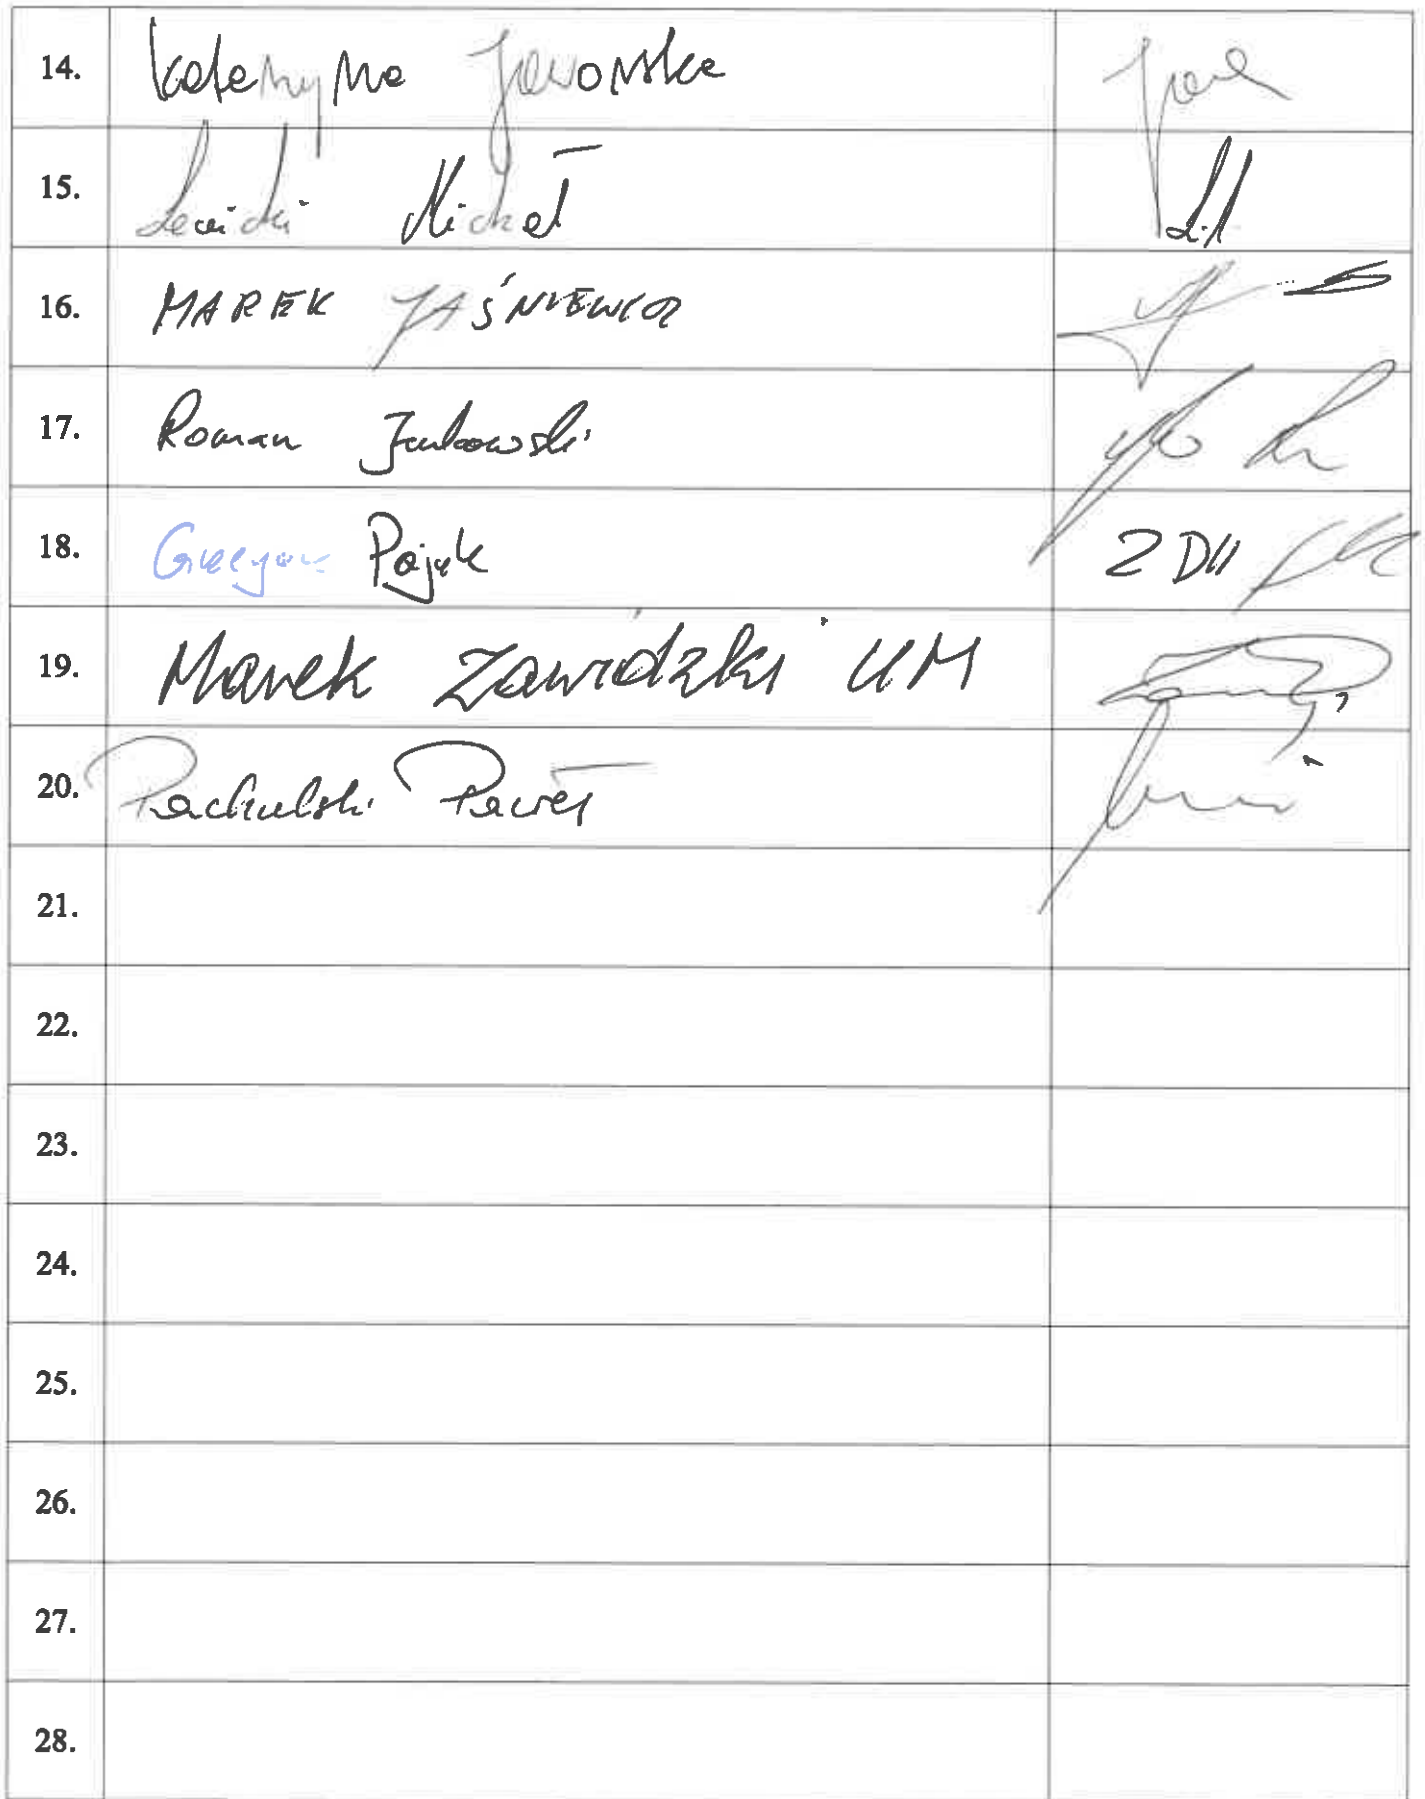 14. Katarzyna Jaworska
15. Lewicki Michał
16. MAREK JAŚNIEWICZ
17. Roman Jankowski
18. Grzegorz Pająk ZDM
19. Marek Zawidzki UM
20. Pachulski Paweł
21.
22.
23.
24.
25.
26.
27.
28.